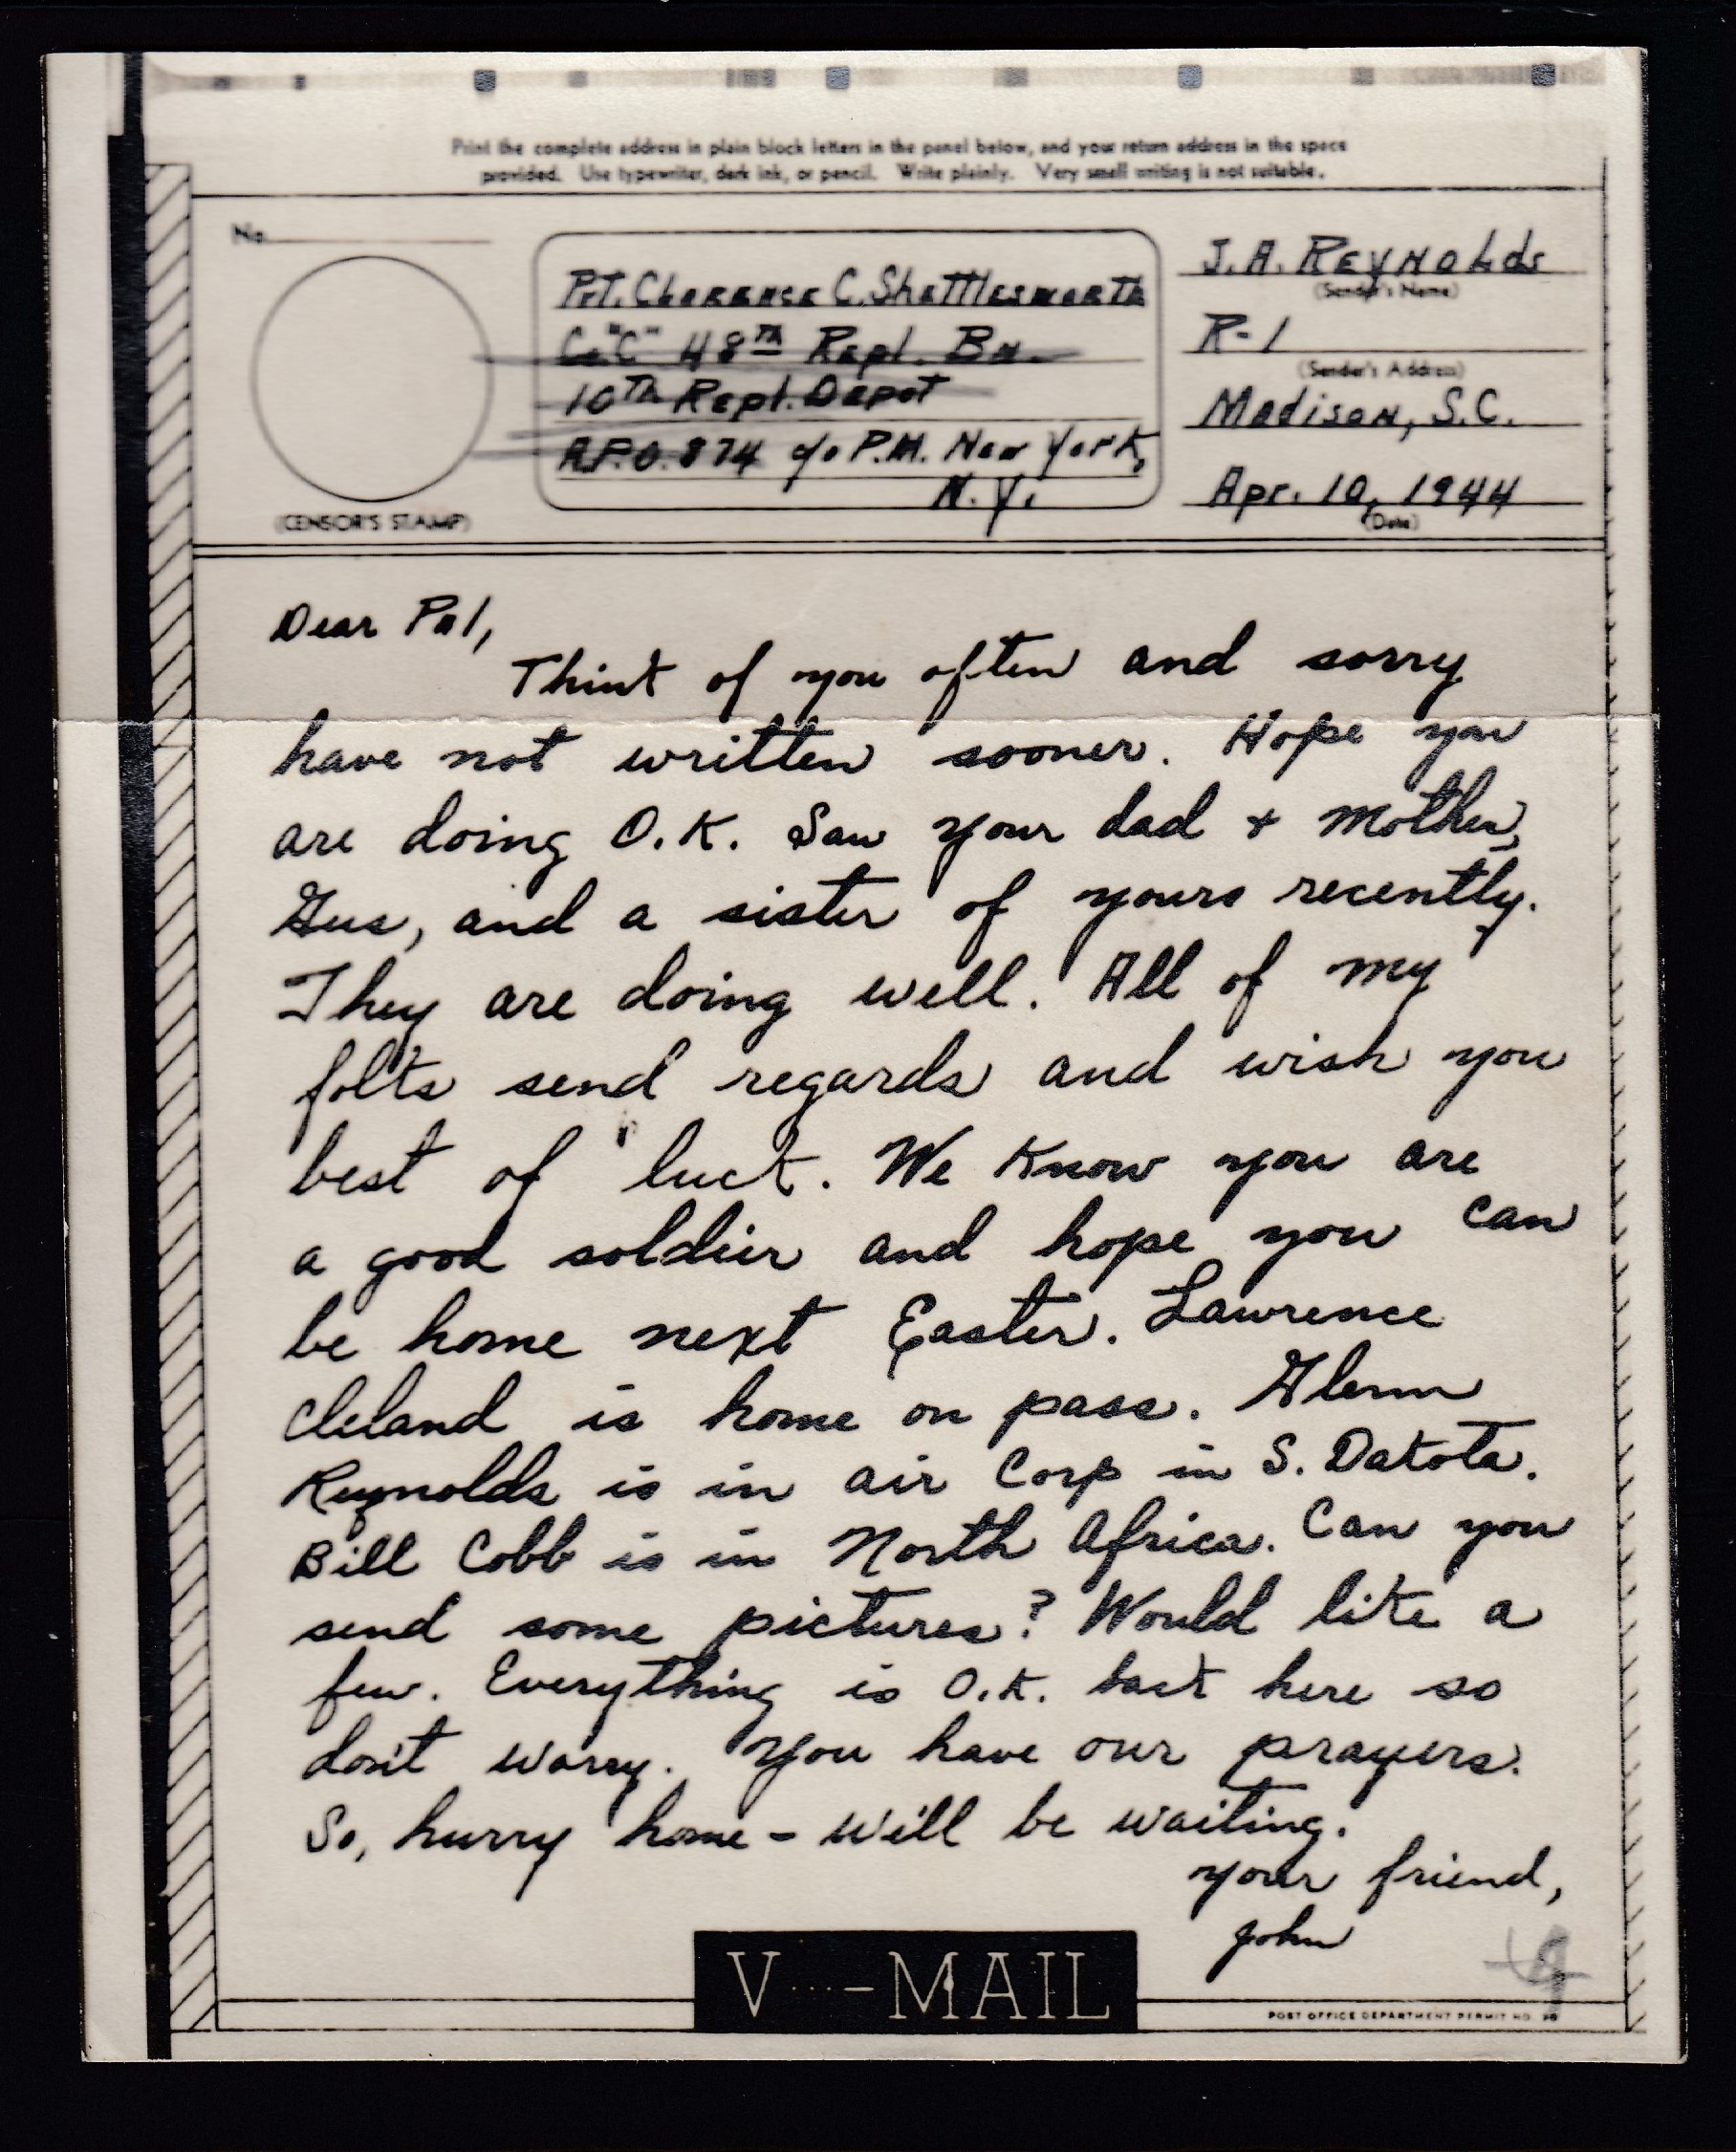 Print the complete address in plain block letters in the panel below, and your return address in the space
provided. Use typewriter, dark ink, or pencil. Write plainly. Very small writing is not suitable.
No.
(CENSOR'S STAMP)
Pvt. Clarence C. Shettlesworth
Co "C" 48TH Repl. Bn.
10TH Repl. Depot
A.P.O. 874 c/o P.M. New York,
N.Y.
J.A. REYNOLds
(Sender's Name)
R-1
(Sender's Address)
Madison, S.C.
Apr. 10, 1944
(Date)
Dear Pal,
Think of you often and sorry
have not written sooner. Hope you
are doing O.K. Saw your dad + mother,
Gus, and a sister of yours recently.
They are doing well. All of my
folks send regards and wish you
best of luck. We know you are
a good soldier and hope you can
be home next Easter. Lawrence
Cleland is home on pass. Glenn
Reynolds is in air Corp in S. Dakota.
Bill Cobb is in North Africa. Can you
send some pictures? Would like a
few. Everything is O.K. back here so
don't worry. You have our prayers.
So, hurry home - will be waiting.
your friend,
John
V···—MAIL
POST OFFICE DEPARTMENT PERMIT NO.